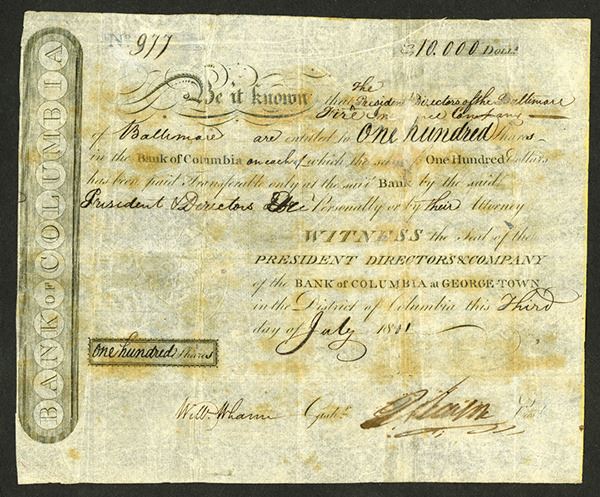 No. 977
10.000 Doll.s
BANK OF COLUMBIA
Be it known that The President & Directors of the Baltimore
Fire Company
of Baltimore are entitled to One hundred Shares
in the Bank of Columbia on each of which the sum of One Hundred Dollars
has been paid Transferable only at the said Bank by the said
President & Directors &c Personally or by their Attorney
WITNESS the Seal of the
PRESIDENT DIRECTORS & COMPANY
of the BANK of COLUMBIA at GEORGE-TOWN
in the District of Columbia this Third
day of July 1801
One hundred Shares
Will. Whann Cash.r